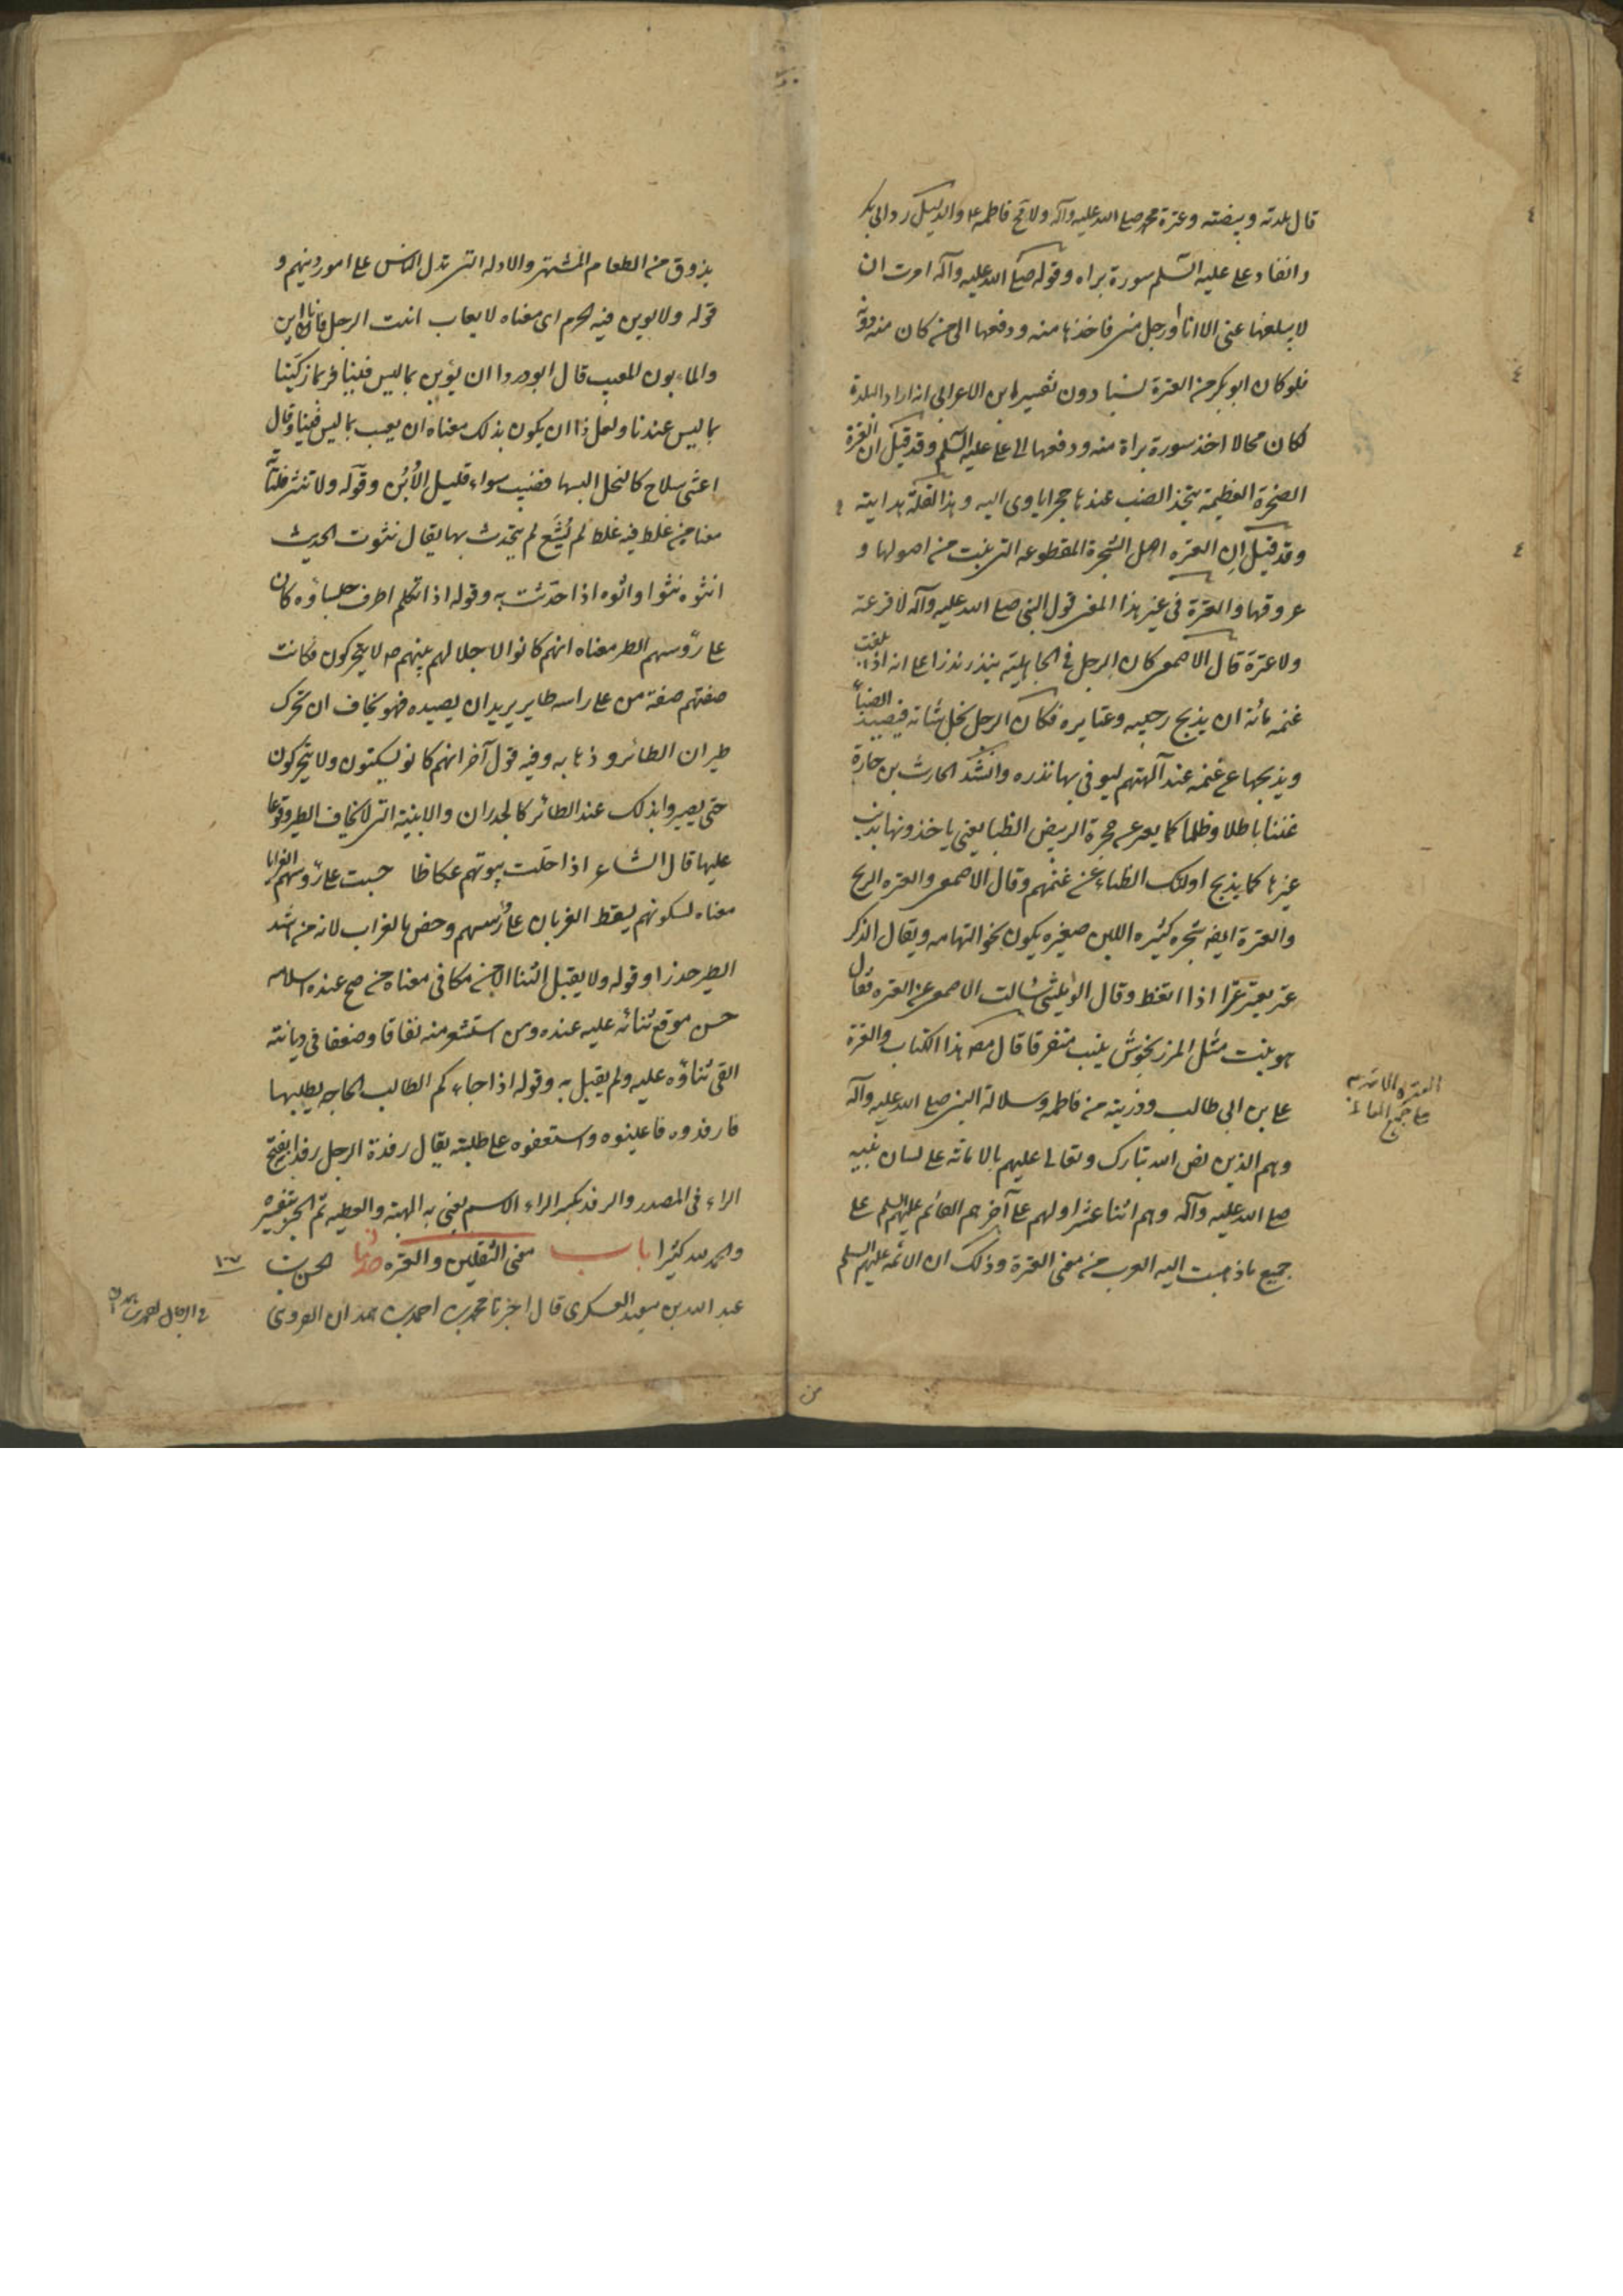 قال بلدته وبيضته وعترة محمد صلى الله عليه وآله ولا مح فاطمه ع والدليل رد ابى بكر
وانفاد على عليه السلم سورة براه وقوله صلى الله عليه وآله امرت ان
لا يبلغها عنى الا انا او رجل منى فاخذها منه ودفعها الى من كان منه دونه
فلو كان ابو بكر من العترة نسبا دون تفسير ابن الاعرابى انه اراد البلدة
لكان محالا اخذ سورة براة منه ودفعها الى على عليه السلم وقد قيل ان العترة
الصخرة العظيمة يتخذ الضب عندها جحرا ياوى اليه وهذا لقلة هدايته
وقد قيل ان العتره اصل الشجرة المقطوعه التى نبت من اصولها و
عروقها والعترة فى غير هذا المعنى قول النبى صلى الله عليه وآله لا فرعة
ولا عترة قال الاصمعى كان الرجل فى الجاهلية ينذر نذرا على انه اذا بلغت
غنمه مائة ان يذبح رجبيه وعتايره فكان الرجل بخل بشاته فيصيد الضبأ
ويذبحها عن غنمه عند آلهتهم ليوفى بها نذره وانشد الحارث بن حلزة
عننا باطلا وظلما كما يعر عن حجرة الربيض الظبا يعنى ياخذونها بذنب
غيرها كما يذبح اولئك الظباء عن غنمهم وقال الاصمعى والعتره الريح
والعترة ايضه شجره كثيره اللبن صغيره يكون نحو التهامه ويقال الذكر
عتر يعتر عترا اذا انعظ وقال الرياشى سالت الاصمعى عن العتره فقال
هو نبت مثل المرزنجوش ينبت متفرقا قال مصـ هذا الكتاب والعترة
على بن ابى طالب وذريته من فاطمه وسلالة النبى صلى الله عليه وآله
وهم الذين نص الله تبارك وتعالى عليهم بالامامة على لسان نبيه
صلى الله عليه وآله وهم اثنا عشر اولهم على آخرهم القائم عليهم السلم على
جميع ما ذهبت اليه العرب من معنى العترة وذلك ان الائمه عليهم السلم
يذوق من الطعام المشتهى والادلة التى تدل الناس على امور دينهم و
قوله ولا يوبن فيه الحرم اى معناه لا يعاب ابنت الرجل فانا ابن
والمابون المعيب قال ابو دردا ان يؤبن بما ليس فينا فربما زكينا
بما ليس عندنا ولعل ذا ان يكون بذلك معناه ان يعيب بما ليس فينا وقال
اعشى سلاح كالنخل البسها قضيب سواء قليل الأُبُن وقوله ولا تنثى فلتاته
معناه من غلط فيه غلط لم يُشَع لم يتحدث بها يقال نثوت الحديث
انثوه نثوا وانوه اذا حدثت به وقوله اذا تكلم اطرف جلساؤه كان
على رؤسهم الطير معناه انهم كانوا لاجلالهم نبيهم صـ لا يتحركون فكانت
صفتهم صفة من على راسه طاير يريد ان يصيده فهو يخاف ان تحرك
طيران الطائر وذهابه وفيه قول آخر انهم كانو يسكتون ولا يتحركون
حتى يصيروا بذلك عند الطائر كالجدران والابنية التى لا يخاف الطير وقوعا
عليها قال الشاعر اذا حلت بيوتهم عكاظا حسبت على رؤسهم الغرابا
معناه لسكونهم يسقط الغربان على رؤسهم وخص بالغراب لانه من اشد
الطير حذرا وقوله ولا يقبل الثنا الا من مكافى معناه من صح عنده اسلامه
حسن موقع ثنائه عليه عنده ومن استشعر منه نفاقا وضعفا فى ديانته
القى ثناؤه عليه ولم يقبل به وقوله اذا جاءكم الطالب الحاجه يطلبها
فارفدوه فاعينوه واستعفوه على طلبته يقال رفدة الرجل رفدا بفتح
الراء فى المصدر والرفد بكسر الراء الاسم يعنى به الهبة والعطيه تم الخبر بتفسيره
والحمد لله كثيرا باب معنى الثقلين والعتره حدثنا الحسن بن
عبد الله بن سعيد العسكرى قال اخبرنا محمد بن احمد بن حمدان القروى